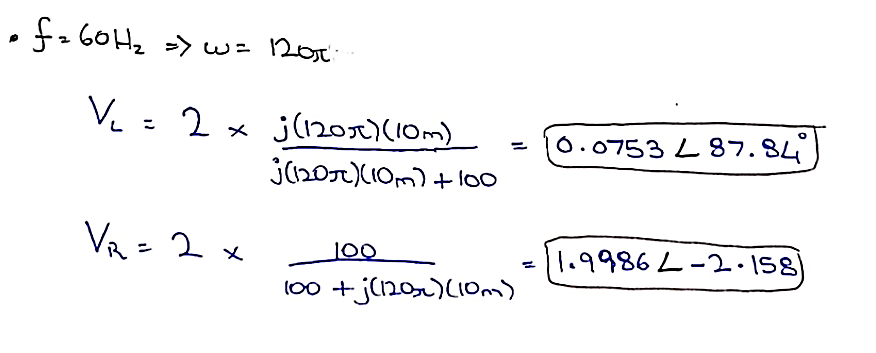 • f = 60Hz => ω = 120π
V_L = 2 × j(120π)(10m) / j(120π)(10m) + 100 = 0.0753 ∠ 87.84°
V_R = 2 × 100 / 100 + j(120π)(10m) = 1.9986 ∠ -2.158